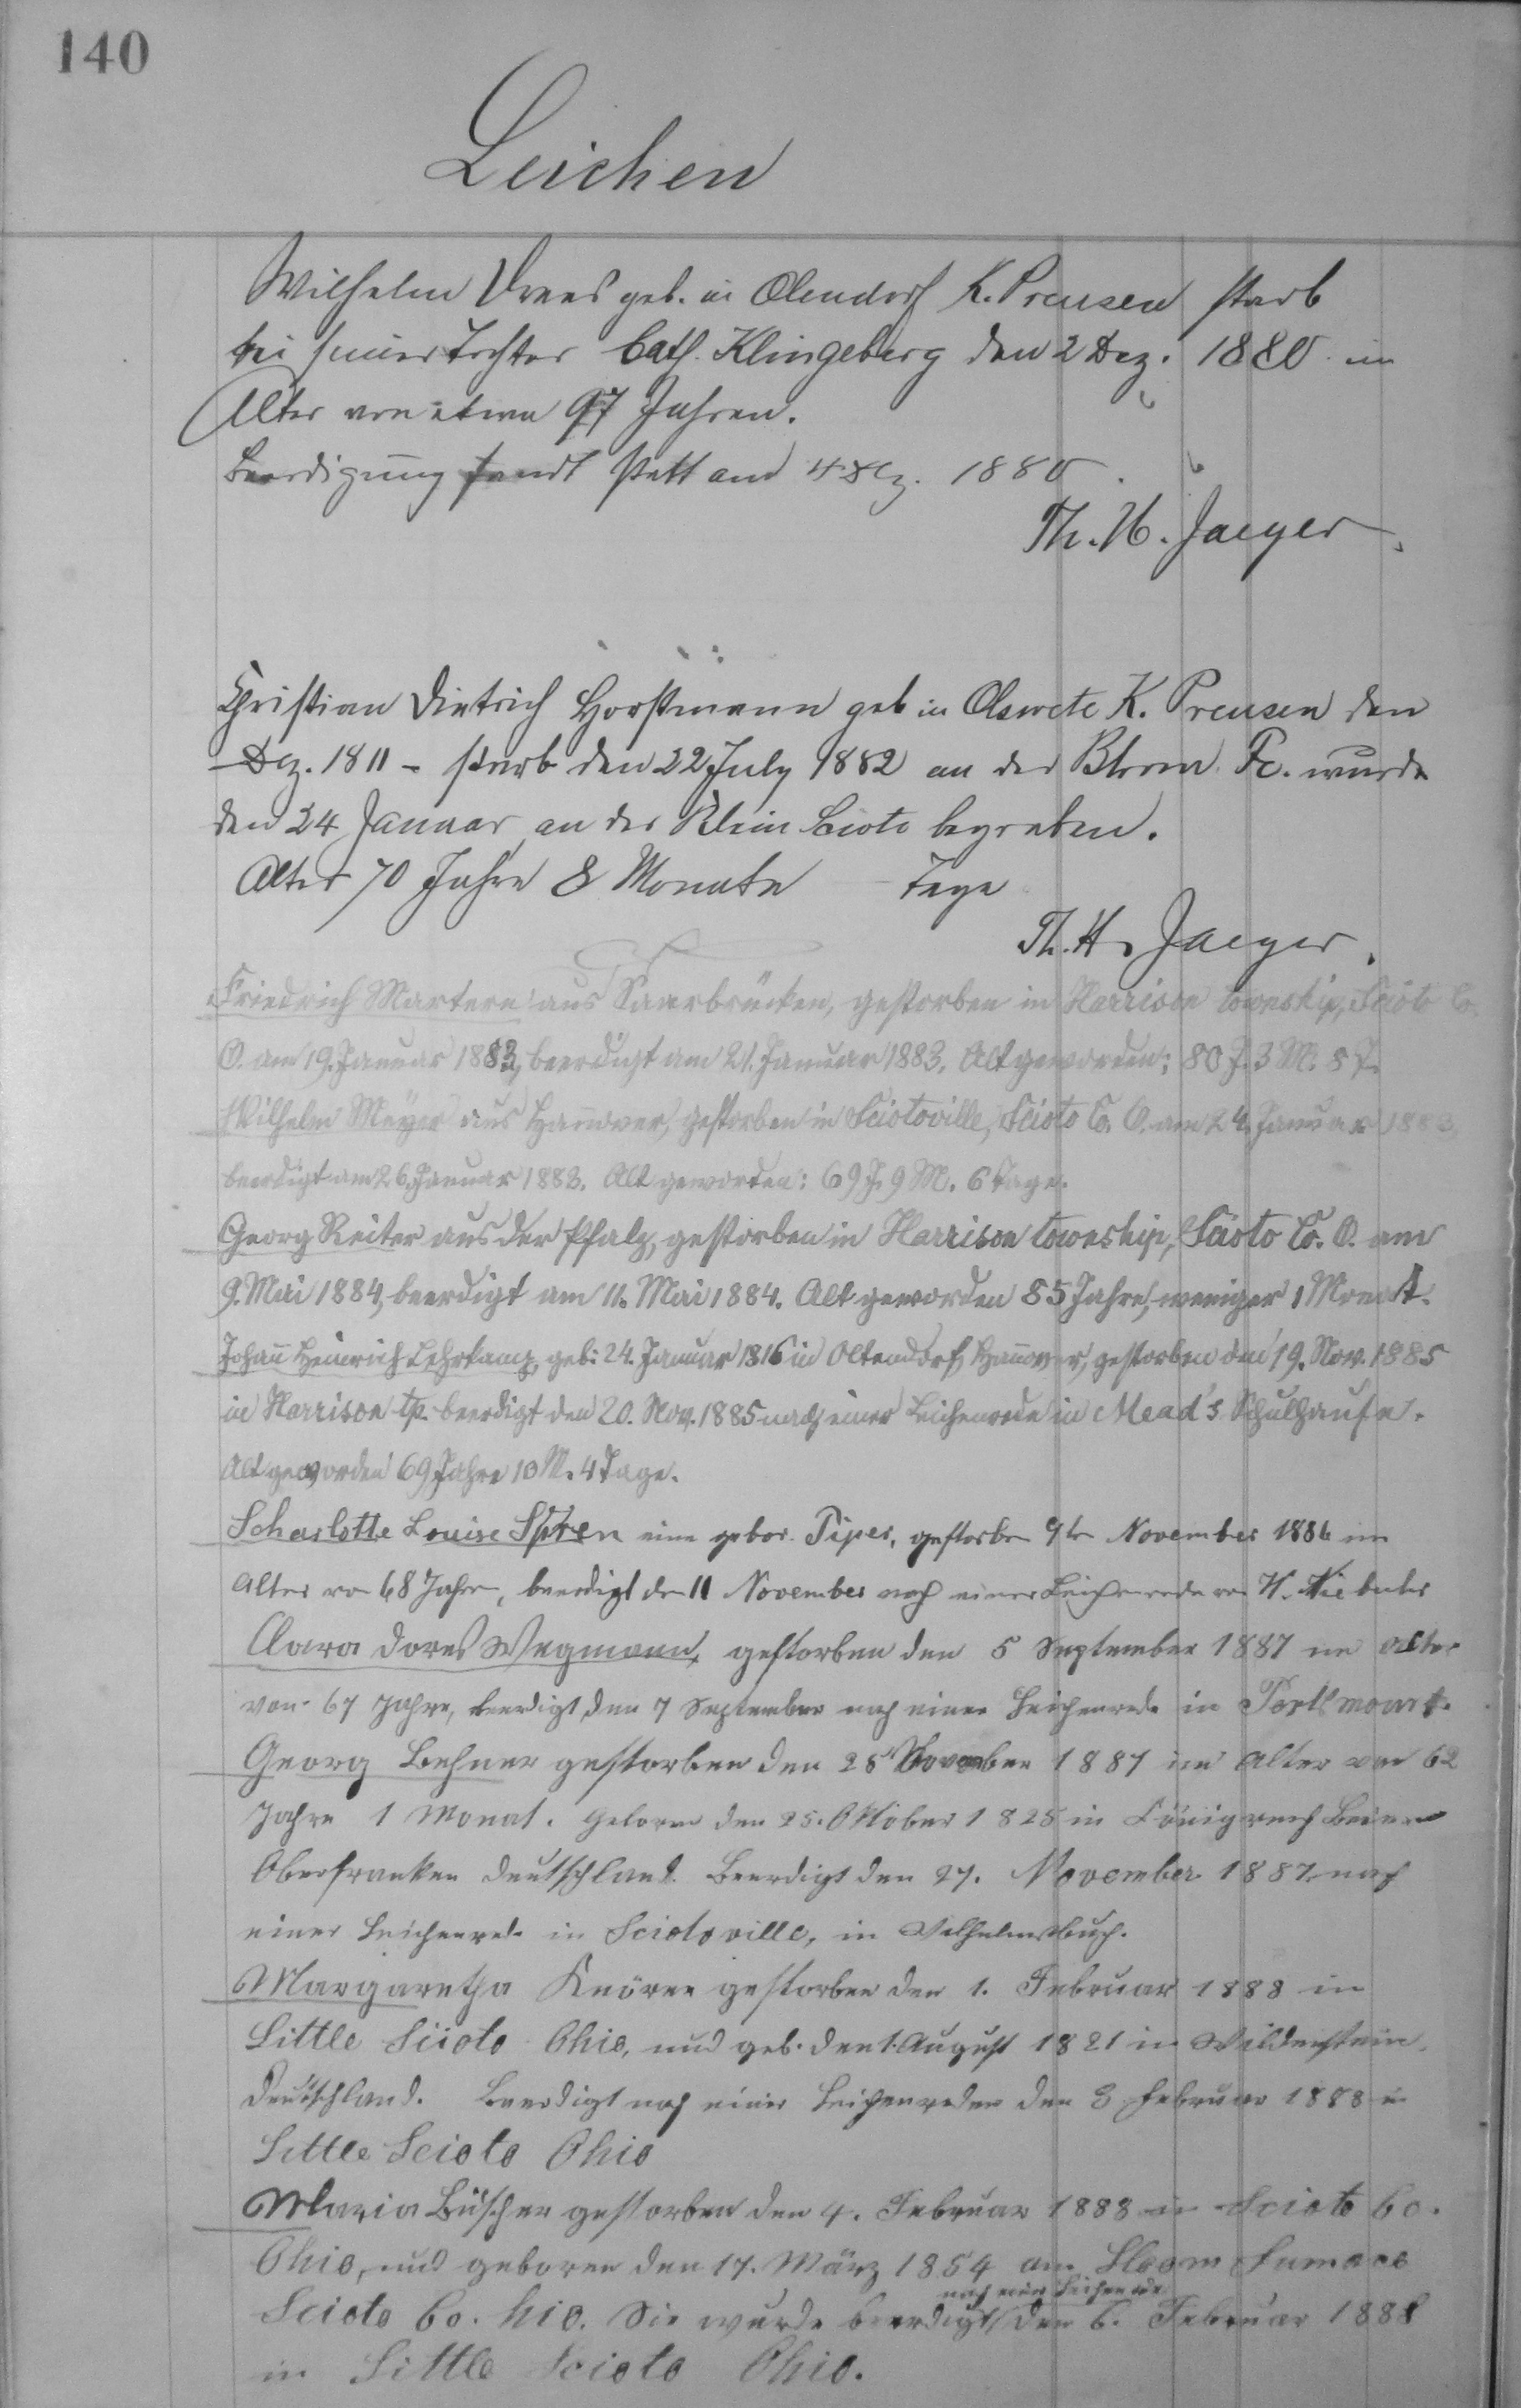 140
Leichen
Wilhelm Drees geb. in Olendorf K. Preusen starb
bei seiner Tochter Cath. Klingeberg den 2 Dez. 1880 im
Alter von etwa 97 Jahren.
Beerdigung fandt statt am 4 Dez. 1880.
Th. H. Jaeger.
Christian Dietrich Horstmann geb in K. Preusen den
– Dez. 1811 – starb den 22 July 1882 an der Bloom Fc. wurde
den 24 Januar an der Klein Scioto begraben.
Alter 70 Jahre 8 Monate – Tage
Th. H. Jaeger.
Friedrich Martern aus Saarbrücken, gestorben in Harrison township, Scioto Co.
O. am 19. Januar 1883, beerdigt am 21. Januar 1883. Alt geworden: 80 J. 3 M. 8 T.
Wilhelm Meyer aus Hannover, gestorben in Sciotoville, Scioto Co. O. am 24. Januar 1883,
beerdigt am 26. Januar 1883. Alt geworden: 69 J. 9 M. 6 Tage.
Georg Reiter aus der Pfalz, gestorben in Harrison township, Scioto Co. O. am
9. Mai 1884, beerdigt am 11. Mai 1884. Alt geworden 85 Jahre, weniger 1 Monat.
Johann Heinrich Lehrkamp, geb: 24. Januar 1816 in Oltendorf, Hannover, gestorben am 19. Nov. 1885
in Harrison tp. beerdigt den 20. Nov. 1885 nach einer Leichenrede in Mead's Schulhause.
Alt geworden 69 Jahre 10 M. 4 Tage.
Scharlotte Louise eine gebor. Piper, gestorben 9te November 1886 im
Alter von 68 Jahre, beerdigt den 11 November nach einer Leichenrede von H.
Clara Dores Wegmann, gestorben den 5 September 1887 im alter
von 67 Jahre, beerdigt den 7 September nach einer Leichenrede in
Georg Lehner gestorben den 25 November 1887 im Alter von 62
Jahre 1 Monat. Geboren den 25. Oktober 1825 in Königreich
Oberfranken Deutschland. Beerdigt den 27. November 1887 nach
einer Leichenrede in Sciotoville, in
Margaretha Knörre gestorben den 1. Februar 1888 in
Little Scioto Ohio, und geb. den 1. August 1821 in Wildenstein,
Deutschland. Beerdigt nach einer Leichenreden den 3 Februar 1888 in
Little Scioto Ohio
Maria Büscher gestorben den 4. Februar 1888 in Scioto Co.
Ohio, und geboren den 17. März 1854 am Bloom Furnace
nach einer Leichenrede
Scioto Co. hio. Sie wurde beerdigt den 6. Februar 1888
in Little Scioto Ohio.